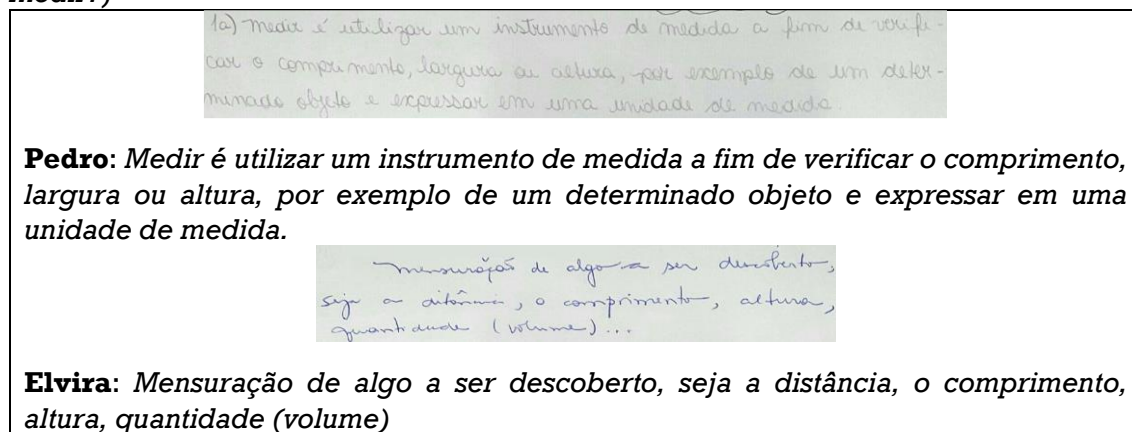 medir?)
1a) medir é utilizar um instrumento de medida a fim de verifi-
car o comprimento, largura ou altura, por exemplo de um deter-
minado objeto e expressar em uma unidade de medida.
Pedro: Medir é utilizar um instrumento de medida a fim de verificar o comprimento,
largura ou altura, por exemplo de um determinado objeto e expressar em uma
unidade de medida.
mensuração de algo a ser descoberto,
seja a distância, o comprimento, altura,
quantidade (volume)...
Elvira: Mensuração de algo a ser descoberto, seja a distância, o comprimento,
altura, quantidade (volume)